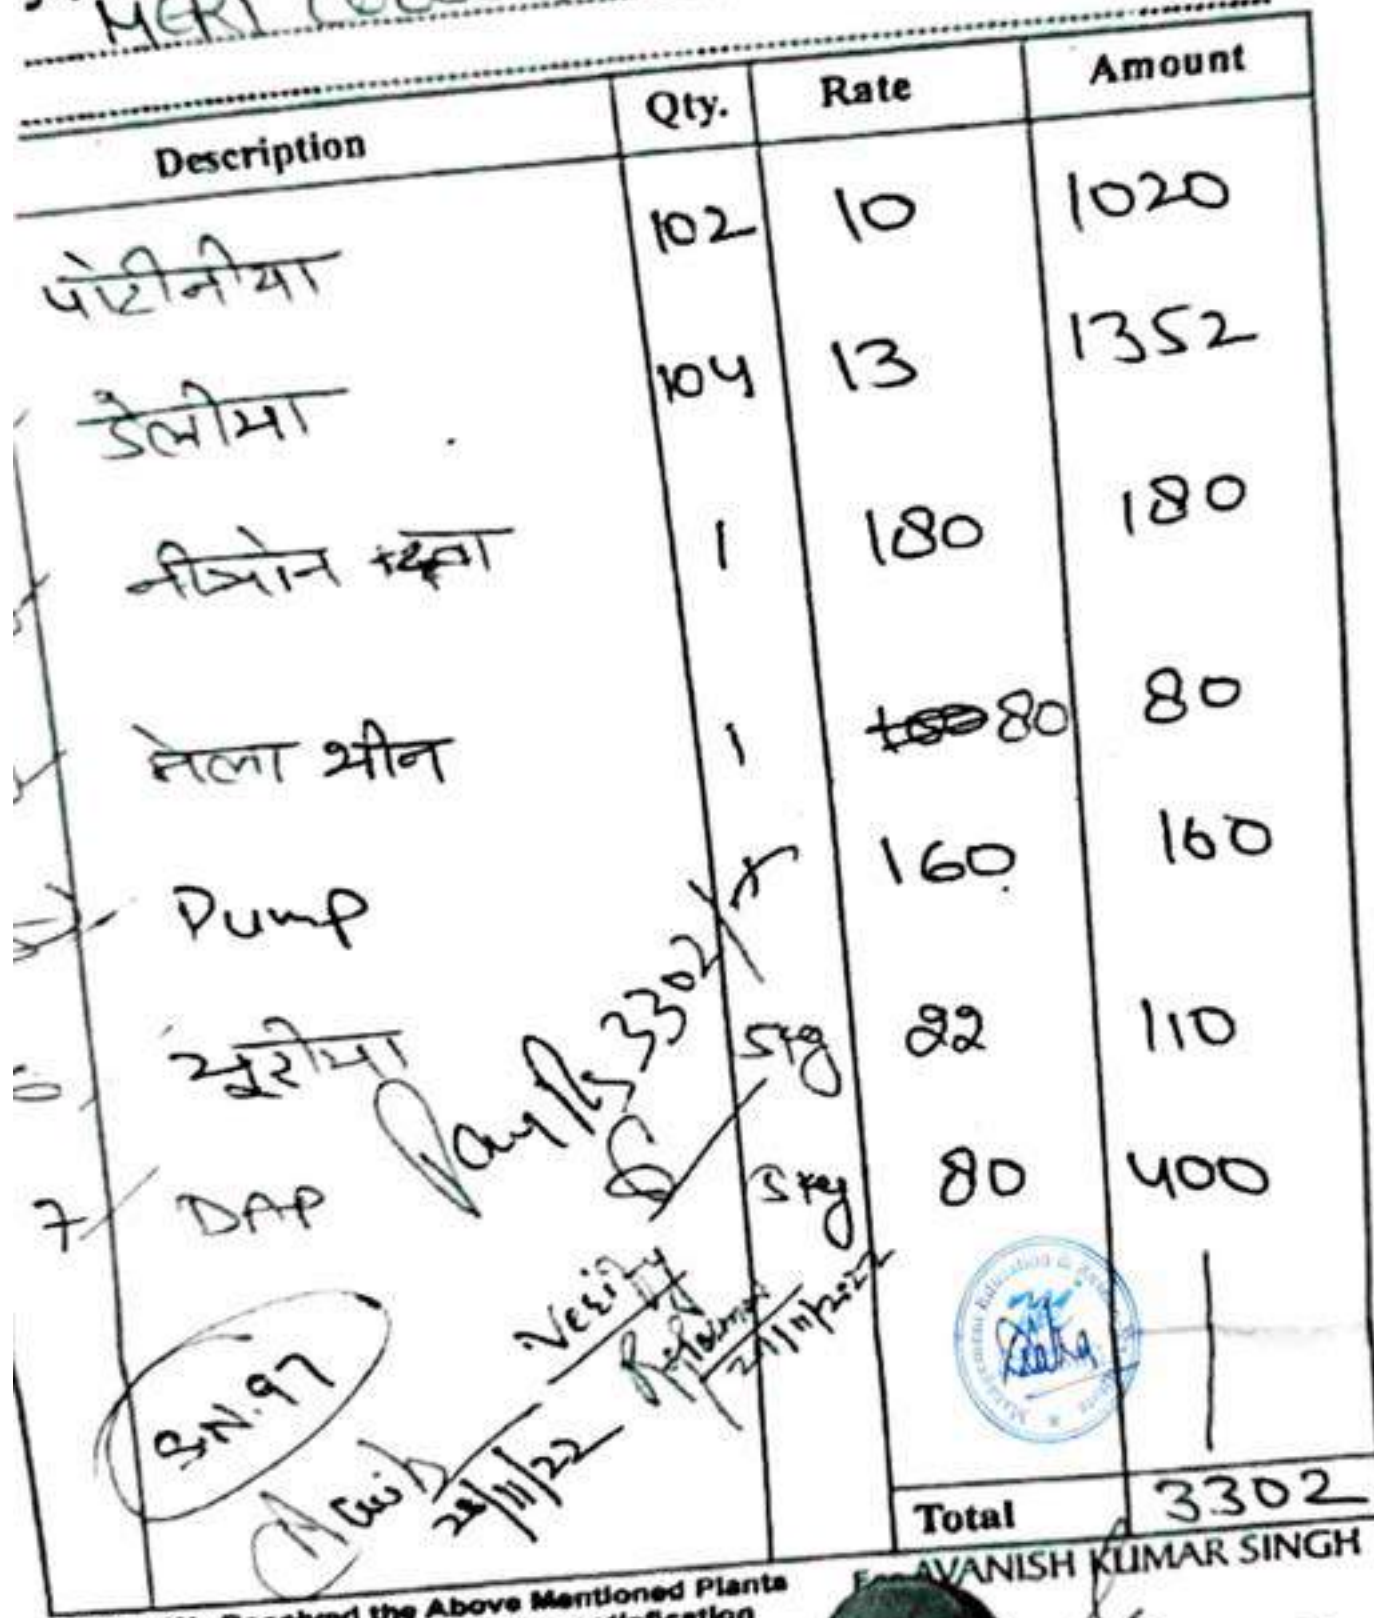 MERI
Description Qty. Rate Amount
पोटीनीया 102 10 1020
डैलीया 104 13 1352
नीमोन 1 180 180
मेला थीन 1 80 80
Pump 160 160
यूरीया 5kg 22 110
7 DAP 5kg 80 400
Pay Rs 3302/
Verify
S.N.97
28/11/22
Total 3302
the Above Mentioned Plants
AVANISH KUMAR SINGH